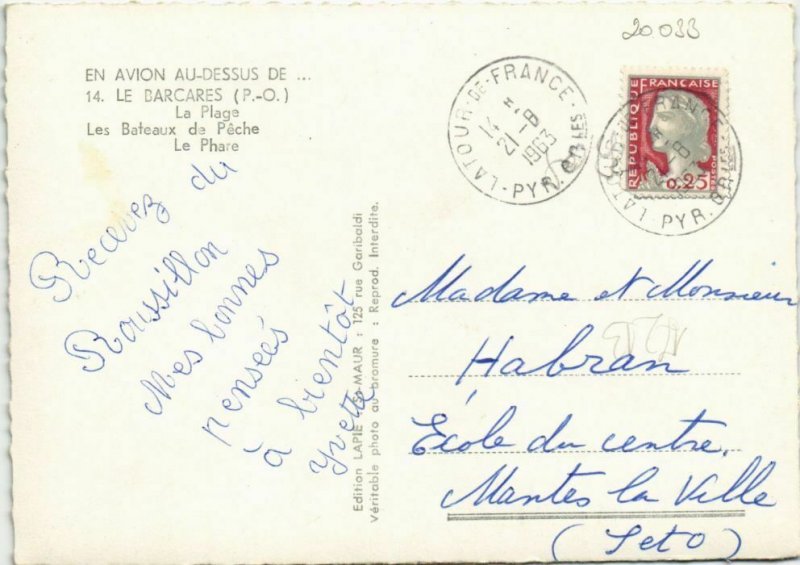 20033
EN AVION AU-DESSUS DE ...
14. LE BARCARES (P.-O.)
La Plage
Les Bateaux de Pêche
Le Phare
Recevez du
Roussillon
Mes bonnes
pensées
à bientôt
Yvette
Edition LAPIE St-MAUR : 125 rue Garibaldi
Véritable photo au bromure : Reprod. Interdite.
LATOUR-DE-FRANCE
21-8
1963
PYR. ORLES
REPUBLIQUE FRANÇAISE
0,25
Madame et Monsieur
Habran
École du centre.
Mantes la Ville
(SetO)